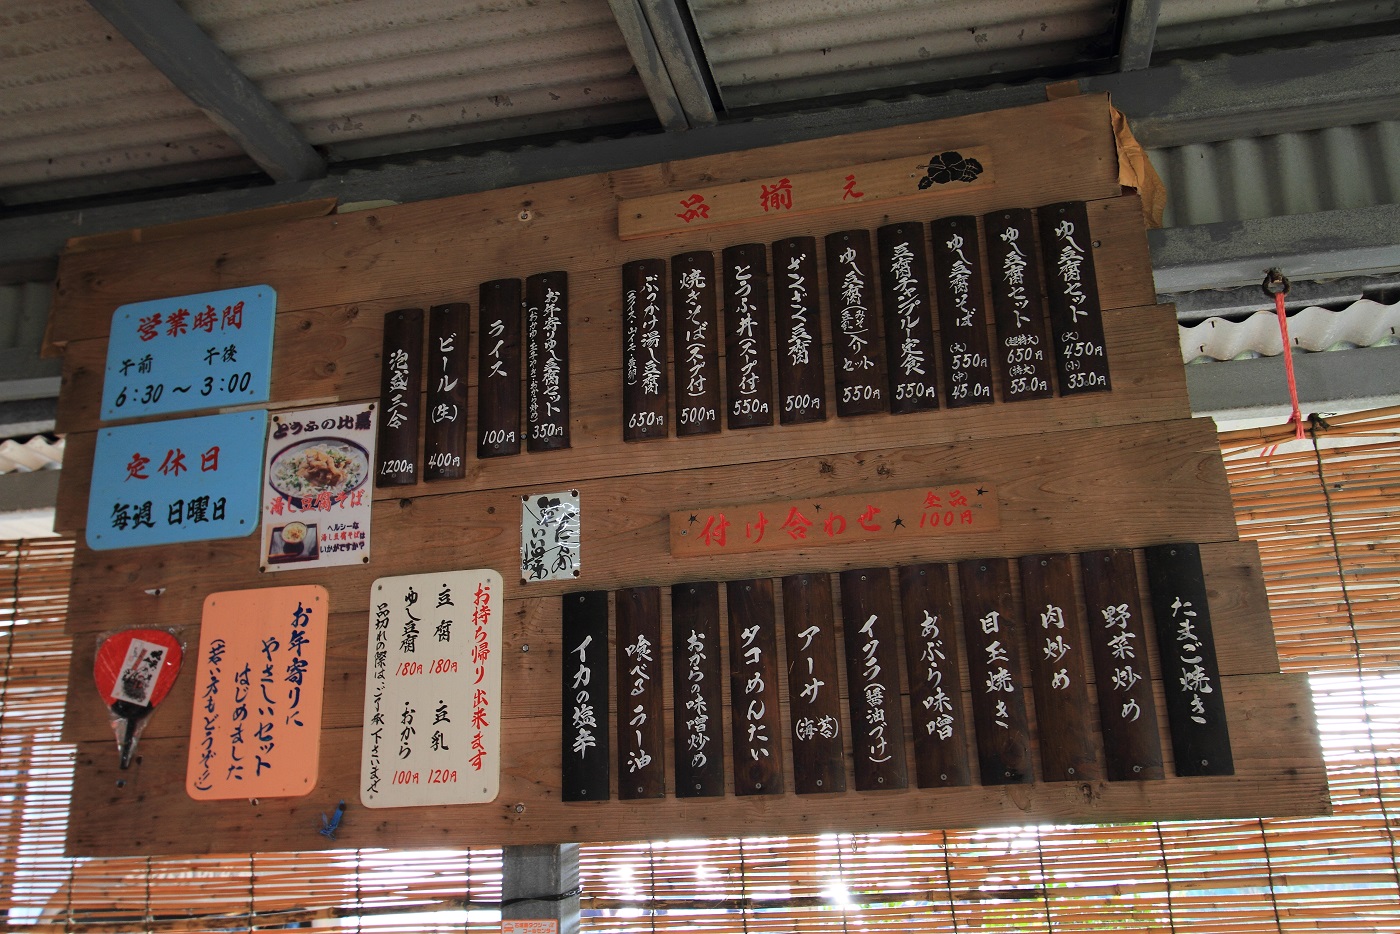 品揃え
ゆし豆腐セット
(大)
450円
(小)
350円
ゆし豆腐セット
(超特大)
650円
(特大)
550円
ゆし豆腐そば
(大)
550円
(中)
450円
豆腐チャンプル定食
550円
ゆし豆腐
入りセット
550円
ざくざく豆腐
500円
とうふ丼(スープ付)
550円
焼きそば(スープ付)
500円
ぶっかけ湯し豆腐
650円
お年寄りゆし豆腐セット
350円
ライス
100円
ビール(生)
400円
泡盛三合
1,200円
営業時間
午前 午後
6:30〜3:00
定休日
毎週 日曜日
とうふの比嘉
湯し豆腐そば
ヘルシーな
湯し豆腐そばは
いかがですか?
付け合わせ
全品
100円
たまご焼き
野菜炒め
肉炒め
目玉焼き
あぶら味噌
イクラ(醤油づけ)
アーサ(海苔)
タコめんたい
おからの味噌炒め
喰べるラー油
イカの塩辛
お持ち帰り出来ます
豆腐 180円
豆乳 120円
ゆし豆腐 180円
おから 100円
品切れの際はご了承下さいませ
お年寄りに
やさしいセット
はじめました
(若い方もどうぞ!!)